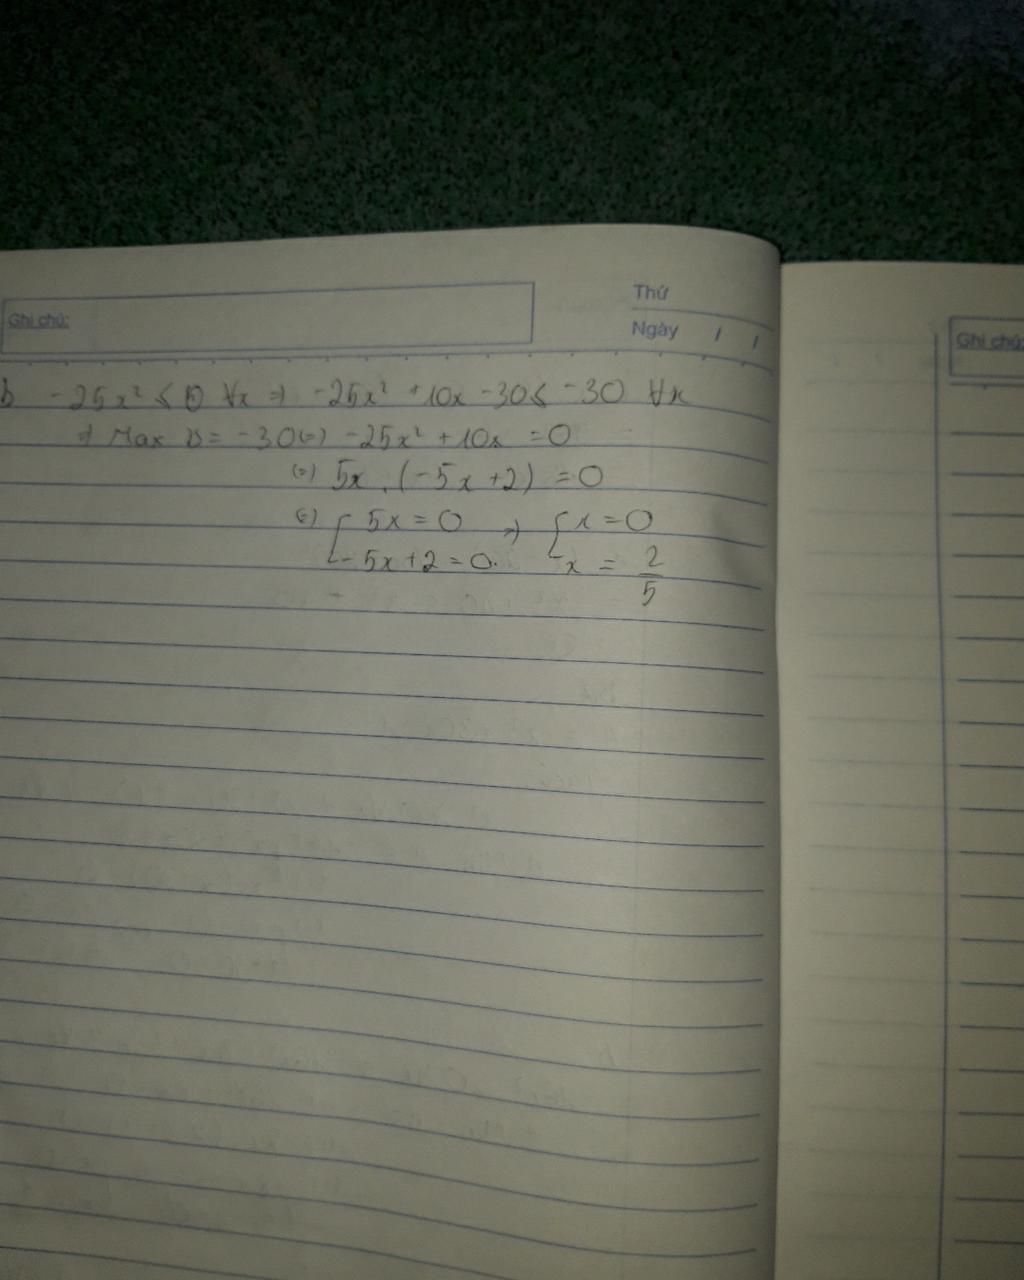 Thứ
Ghi chú:
Ngày / /
Ghi chú:
b -25x² ≤ 0 ∀x ⇒ -25x² +10x -30 ≤ -30 ∀x
⇒ Max B = -30 (=) -25x² +10x = 0
(=) 5x . (-5x +2) = 0
(=) [ 5x = 0 ⇒ [ x = 0
-5x+2 = 0. x = 2/5